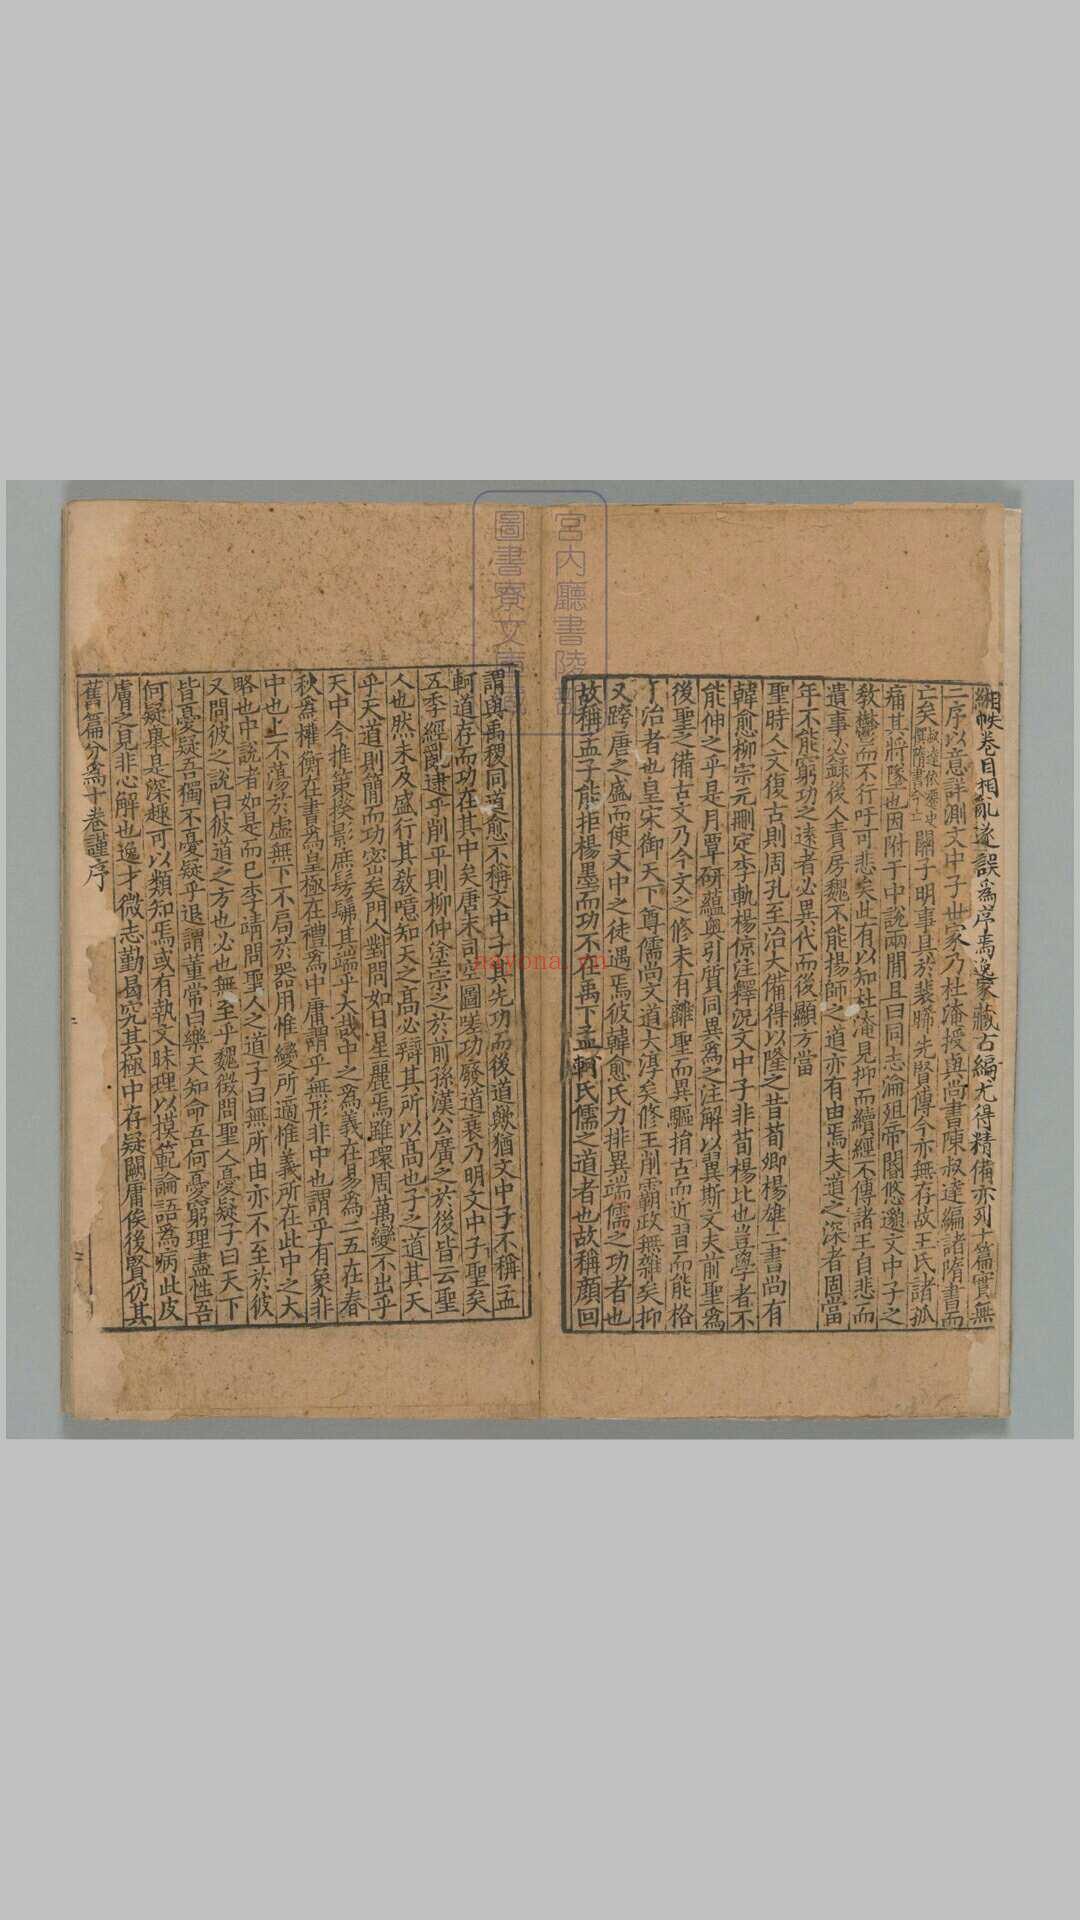 緗帙卷目相亂遂誤為序焉逸家藏古編尤得精備亦列十篇實無
二序以意詳測文中子世家乃杜淹授與尚書陳叔達編諸隋書而
亡矣叔達依遷史撰隋書今亡關子明事具於裴晞先賢傳今亦無存故王氏諸孤
痛其將墜也因附于中說兩間且曰同志淪殂帝閽悠邈文中子之
教鬱而不行吁可悲矣此有以知杜淹見抑而續經不傳諸王自悲而
遺事必錄後人責房魏不能揚師之道亦有由焉夫道之深者固當
年不能窮功之遠者必異代而後顯方當
聖時人文復古則周孔至治大備得以隆之昔荀卿楊雄二書尚有
韓愈柳宗元刪定李軌楊倞注釋況文中子非荀楊比也豈學者不
能伸之乎是月覃研蘊奧引質同異為之注解以翼斯文夫前聖為
後聖之備古文乃今文之修未有離聖而異驅捐古而近習而能格
于治者也皇宋御天下尊儒尚文道大淳矣修王削霸政無雜矣抑
又跨唐之盛而使文中之徒遇焉彼韓愈氏力排異端儒之功者也
故稱孟子能拒楊墨而功不在禹下孟軻氏儒之道者也故稱顏回
謂與禹稷同道愈不稱文中子其先功而後道歟猶文中子不稱孟
軻道存而功在其中矣唐末司空圖嗟功廢道衰乃明文中子聖矣
五季經亂逮乎削平則柳仲塗宗之於前孫漢公廣之於後皆云聖
人也然未及盛行其教噫知天之高必辯其所以高也子之道其天
乎天道則簡而功密矣門人對問如日星麗焉雖環周萬變不出乎
天中今推策揆影庶髣髴其端乎大哉中之為義在易為二五在春
秋為權衡在書為皇極在禮為中庸謂乎無形非中也謂乎有象非
中也上不蕩於虛無下不局於器用惟變所適惟義所在此中之大
略也中說者如是而已李靖問聖人之道子曰無所由亦不至於彼
又問彼之說曰彼道之方也必也無至乎魏徵問聖人憂疑子曰天下
皆憂疑吾獨不憂疑乎退謂董常曰樂天知命吾何憂窮理盡性吾
何疑舉是深趣可以類知焉或有執文昧理以摸範論語為病此皮
膚之見非心解也逸才微志勤曷究其極中存疑闕庸俟後賢仍其
舊篇分為十卷謹序
宮內廳書陵部
圖書寮文庫藏
nayona.cn